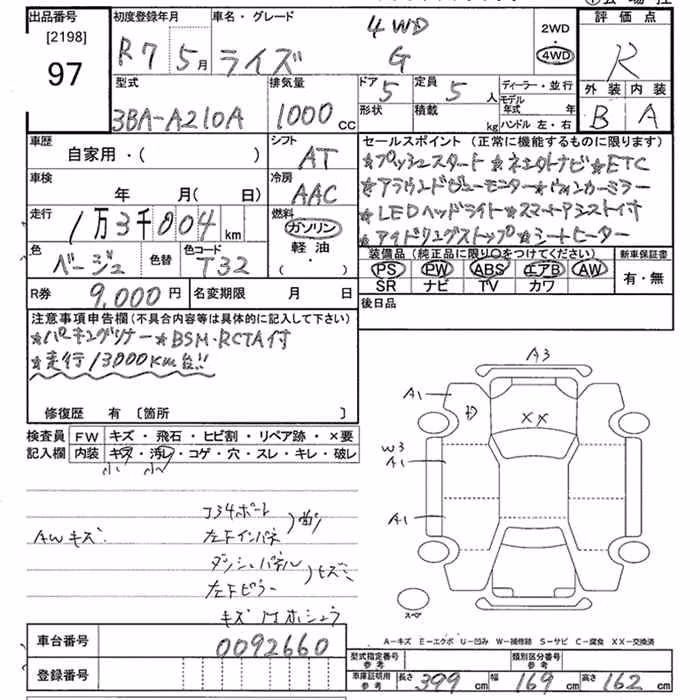 出品番号
[2198]
97
初度登録年月
R7 5月
車名・グレード
4WD
ライズ G
2WD
4WD
評価点
R
外装 内装
B A
型式
3BA-A210A
排気量
1000cc
ドア 5
形状
定員 5人
積載 kg
ディーラー・並行
モデル年式 年
ハンドル 左・右
車歴
自家用・( )
シフト
AT
車検
年 月( 日)
冷房
AAC
走行
1万3千004km
燃料
ガソリン
軽油
・( )
色
ベージュ
色替
色コード
T32
R券
9,000円
名変期限 月 日
セールスポイント (正常に機能するものに限ります)
★プッシュスタート★ネエタトナビ★ETC
★アラウンドビューモニター★ウィンカーミラー
★LEDヘッドライト★スマートアシスト付
★アイドリングストップ★シートヒーター
装備品(純正品に限り〇をつけてください)
PS PW ABS エアB AW
SR ナビ TV カワ
新車保証書
有・無
後日品
注意事項申告欄(不具合内容等は具体的に記入して下さい)
★パーキングソナー★BSM・RCTA付
★走行13000km台!!
修復歴 有 [箇所 ]
検査員記入欄
FW キズ・飛石・ヒビ割・リペア跡・×要
内装 キズ・汚レ・コゲ・穴・スレ・キレ・破レ
小 小
AWキズ
コ34ポート
左Fインパネ
ダッシュパネル
左Fピラー
ヒズミ
キズ
A3
A1
XX
W3
A1
A1
スペア
A-キズ E-エクボ U-凹み W-補修跡 S-サビ C-腐食 XX-交換済
車台番号
0092660
登録番号
型式指定番号
参考
類別区分番号
参考
車庫証明用
参考
長さ 399cm 幅 169cm 高さ 162cm